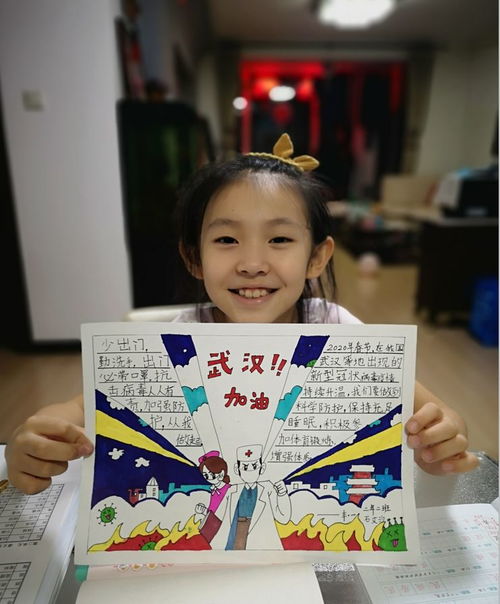 武汉!!
加油
少出门,
勤洗手,出门
必带口罩,抗
击病毒人人有
责,加强防
护,从我
做起
2020年春节,在我国
武汉等地出现的
新型冠状病毒疫情
持续升温,我们要做到
科学防护,保持充足
睡眠,积极参
加体育锻炼,
增强体质
二年二班